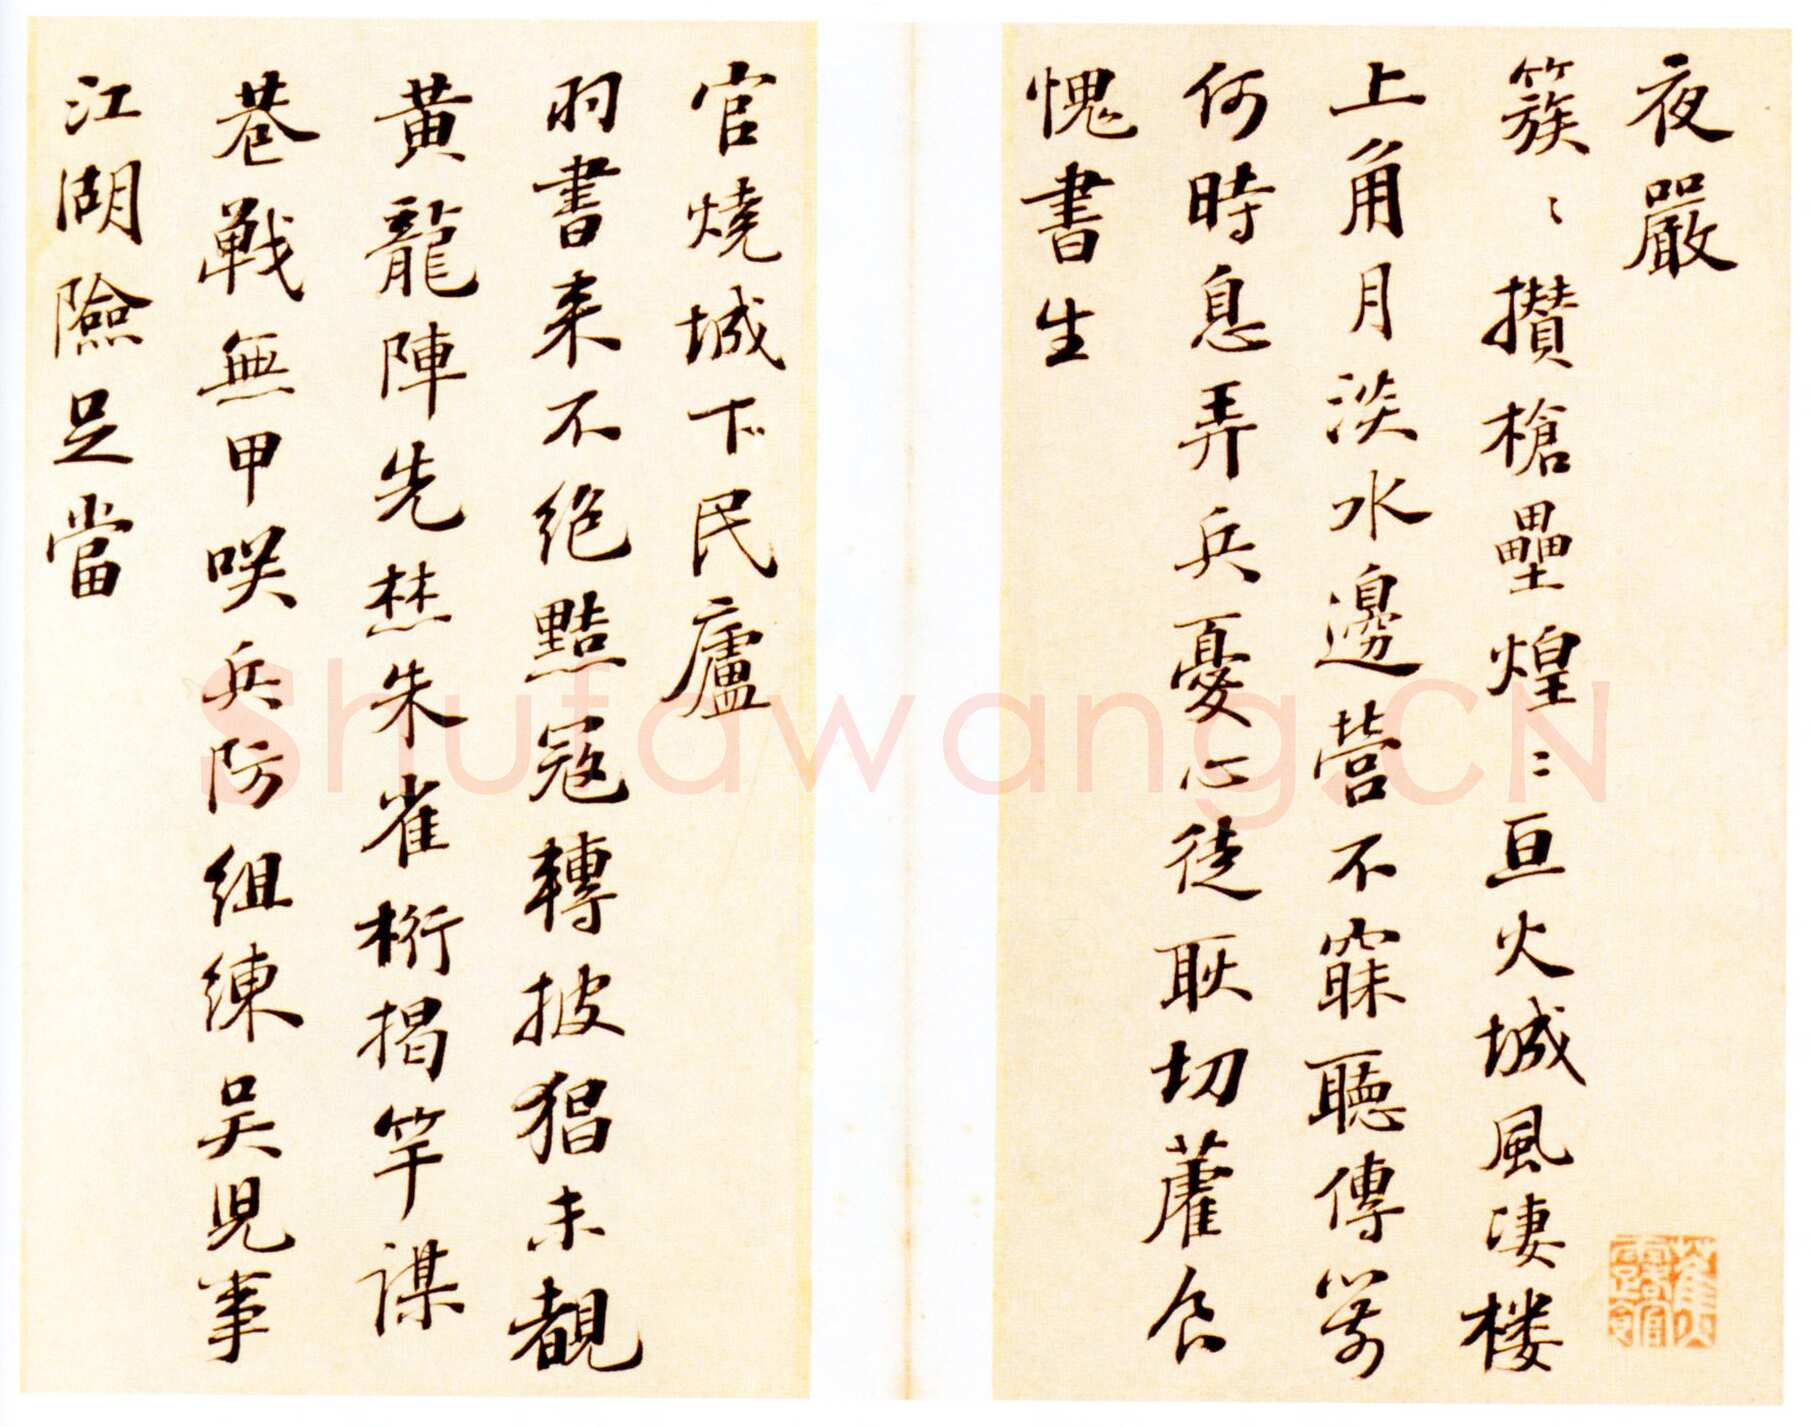 夜嚴
簇〻攢槍壘煌〻亘火城風凄楼
上角月淡水邊營不寐聽傳箭
何時息弄兵憂心徒耿切藿食
愧書生
官燒城下民廬
羽書来不絶黠寇轉披猖未覩
黄龍陣先焚朱雀桁揭竿謀
巷戰無甲咲兵防組練吴児事
江湖險足當
Shufawang.CN